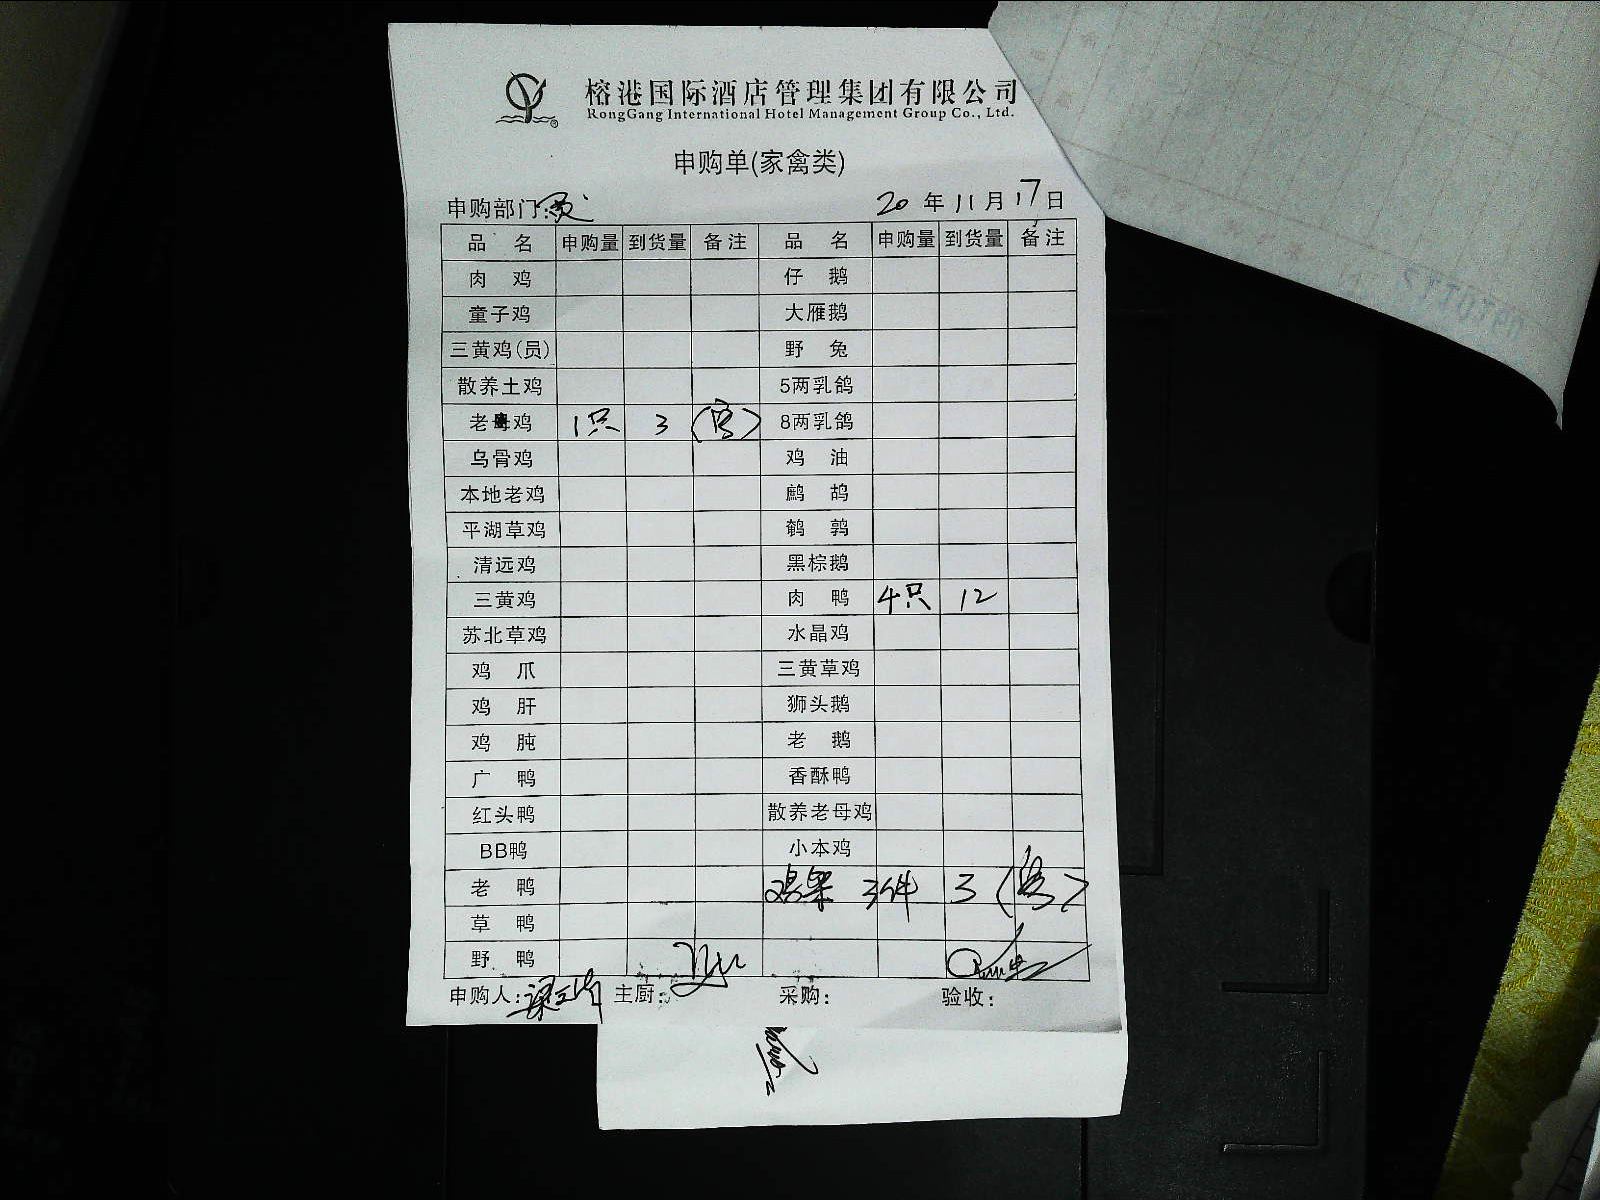 榕港国际酒店管理集团有限公司
RongGang International Hotel Management Group Co., Ltd.
申购单(家禽类)
申购部门: 20年11月17日
品名 申购量 到货量 备注 品名 申购量 到货量 备注
肉鸡 仔鹅
童子鸡 大雁鹅
三黄鸡(员) 野兔
散养土鸡 5两乳鸽
老母鸡 1只 3 8两乳鸽
乌骨鸡 鸡油
本地老鸡 鹧鸪
平湖草鸡 鹌鹑
清远鸡 黑棕鹅
三黄鸡 肉鸭 4只 12
苏北草鸡 水晶鸡
鸡爪 三黄草鸡
鸡肝 狮头鹅
鸡肫 老鹅
广鸭 香酥鸭
红头鸭 散养老母鸡
BB鸭 小本鸡
老鸭 3件 3
草鸭
野鸭
申购人: 主厨: 采购: 验收: